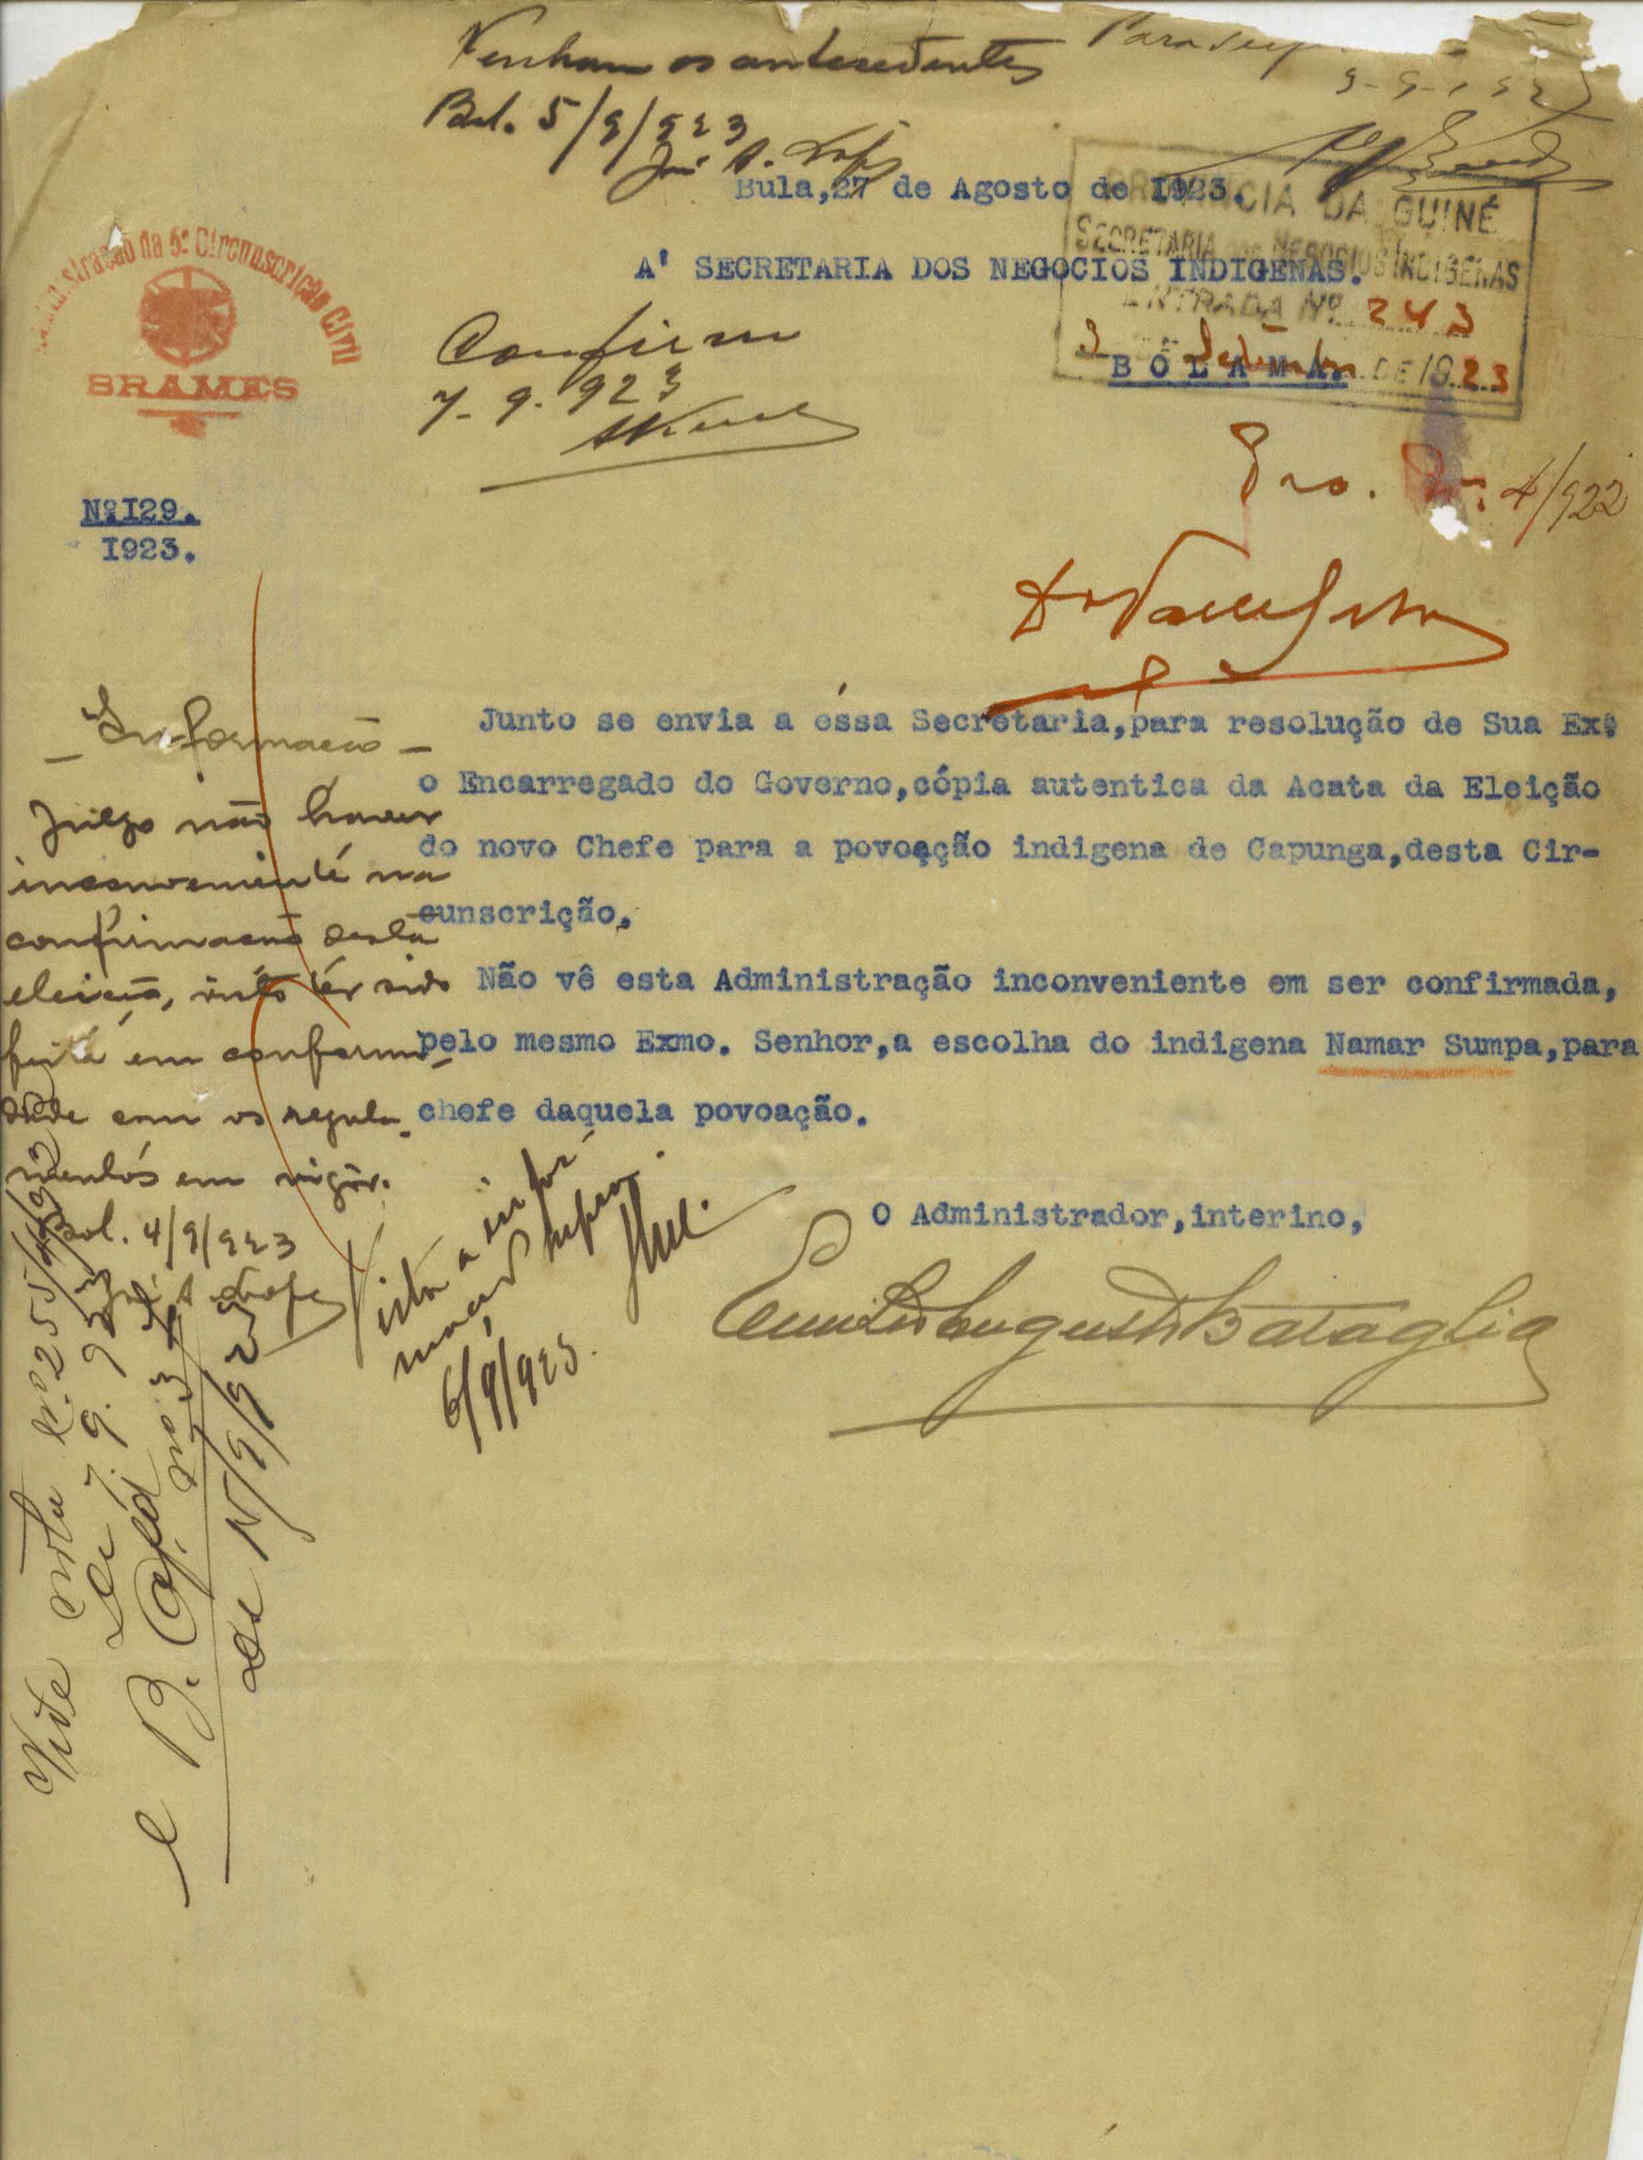 Venham os antecedentes
Bol. 5/9/923
José A. Lopes
Bula,27 de Agosto de I923.
PROVINCIA DA GUINÉ
SECRETARIA DOS NEGOCIOS INDIGENAS
ENTRADA Nº 243
3 DE Setembro DE 1923
A' SECRETARIA DOS NEGOCIOS INDIGENAS.
BOLAMA.
Administração da 6ª Circunscrição Civil
BRAMES
Confirmo
7-9-923
4/922
NºI29.
I923.
Junto se envia a éssa Secretaria,para resolução de Sua Exª
o Encarregado do Governo,cópia autentica da Acata da Eleição
do novo Chefe para a povoação indigena de Capunga,desta Cir-
cunscrição.
Não vê esta Administração inconveniente em ser confirmada,
pelo mesmo Exmo. Senhor,a escolha do indigena Namar Sumpa,para
chefe daquela povoação.
O Administrador,interino,
Emilio Augusto Bataglia
- Informação -
Julgo não haver
inconveniente na
confirmação desta
eleição, visto ter sido
feita em conformi-
dade com os regula-
mentos em vigôr.
Bol. 4/9/923
José A. Lopes
Vista a infor
mação
6/9/923.
Vide nota nº 255/923
de 7.9.923
e B. Of. nº 37
de 15/9/923